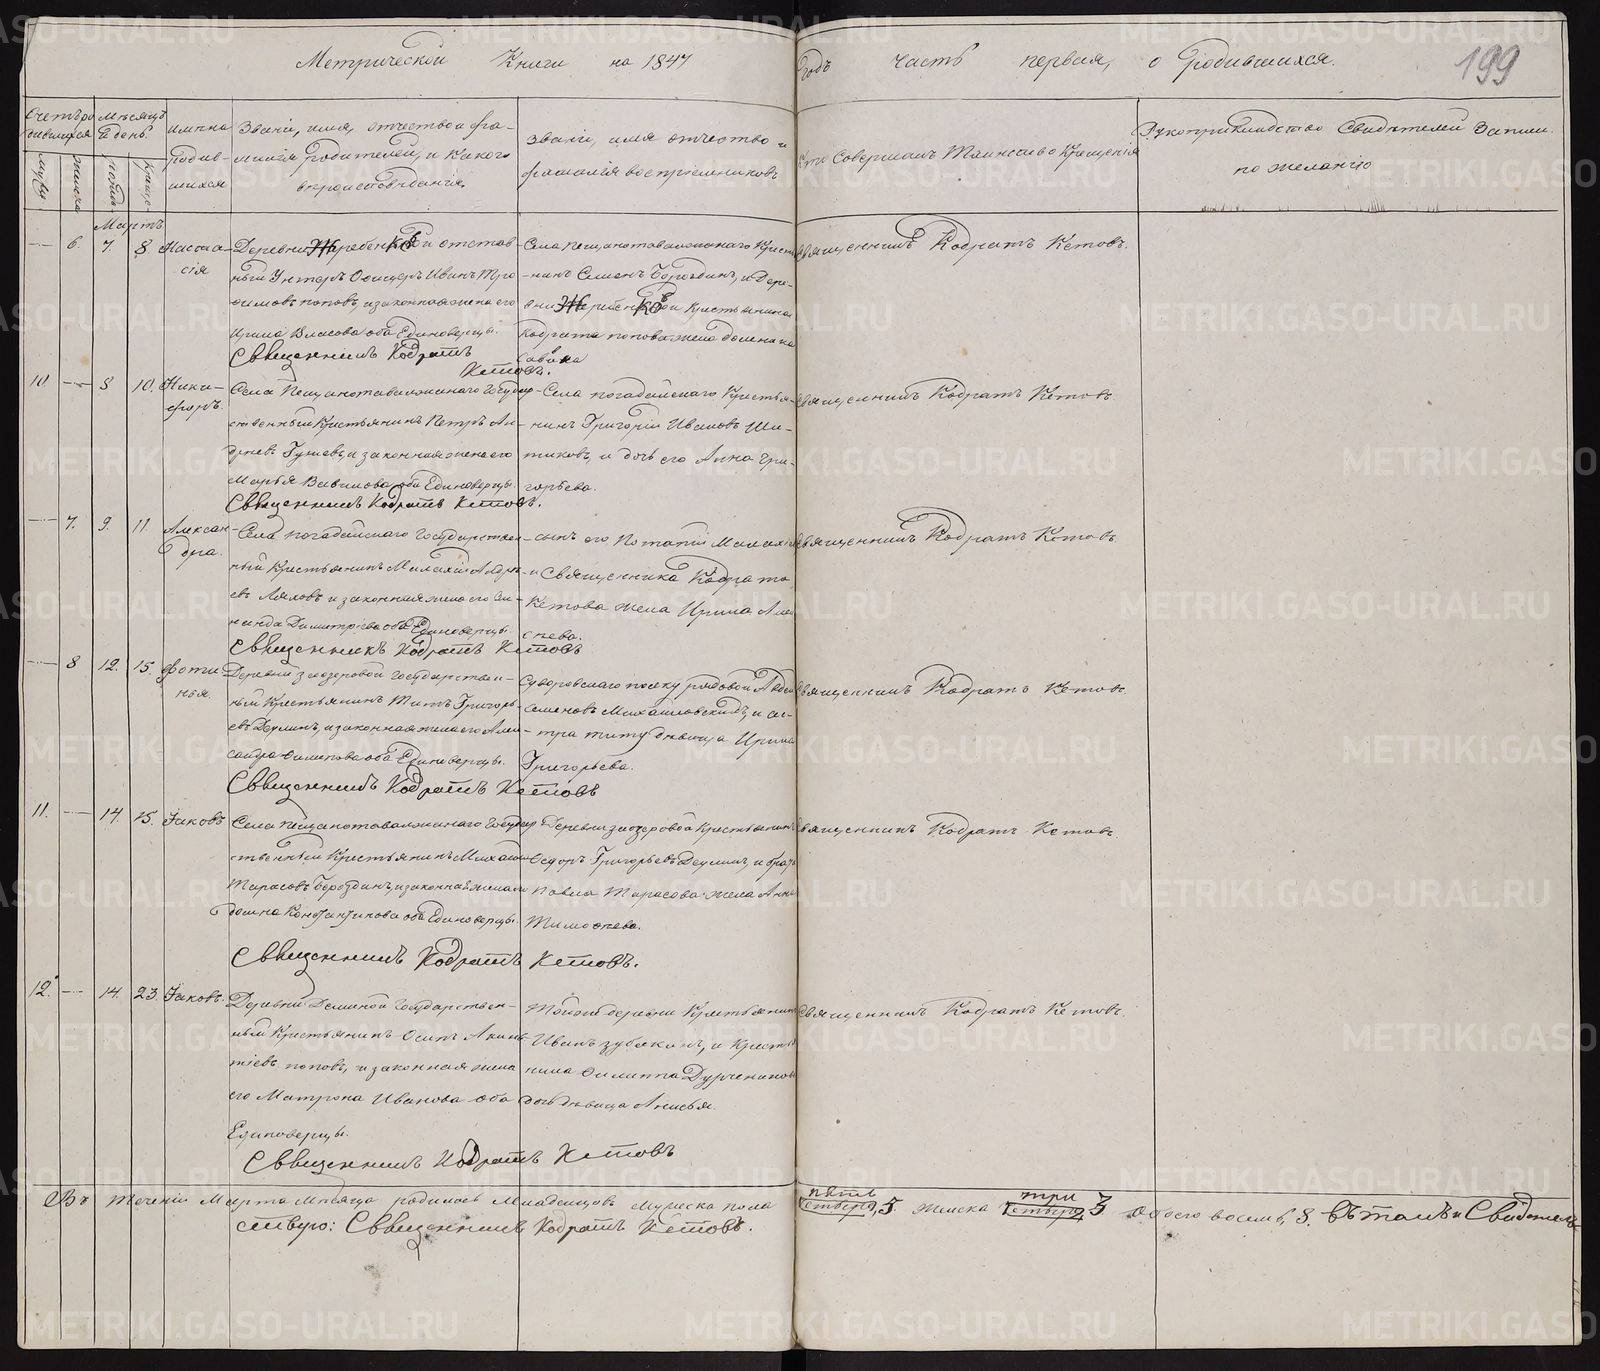 Метрической Книги на 1847 годъ часть первая, о родившихся.
199
Счетъ родившихся
Мѣсяцъ и день
Имена родившихся
Званіе, имя, отчество и фамилія родителей, и какого вѣроисповѣданія.
Званіе, имя отчество и фамилія воспріемниковъ
Кто совершалъ таинство крещенія
Рукоприкладство свидѣтелей записи по желанію
Мартъ
6. 7. 8. Настасія
ный Унтеръ Офицеръ Иванъ Тро
фимовъ Поповъ, и законная жена его
Ирина Власова оба Единоверцы.
Священникъ Кодратъ
Кетовъ.
нинъ Семенъ Бороздинъ, и Дере-
Кодрата Попова жена Домника
Савина
Священникъ Кодратъ Кетовъ.
10. 8 10. Ники-
форъ.
Села Песчанотаволжанаго Государ
ственный Крестьянинъ Петръ Ан
дреевъ Гущевъ, и законная жена его
Марья Вавилова оба Единоверцы.
Священникъ Кодратъ Кетовъ.
Села Погадайскаго Крестья-
нинъ Григорій Ивановъ Ши-
тиковъ, и дочь его Анна Гри-
горьева.
Священникъ Кодратъ Кетовъ
7. 9. 11 Алексан
дра.
Села Погадайскаго Государствен
ный Крестьянинъ Малахій Андре
евъ Ляховъ и законная жена его
Димитріева оба Единоверцы
Священникъ Кодратъ Кетовъ
сынъ его Потапій Малахіевъ
и священника Кодрата
Кетова жена Ирина Але
Священникъ Кодратъ Кетовъ
8 12. 15. Фоти
нья.
Деревни Заозеровой Государствен-
ный Крестьянинъ Титъ Григорь-
евъ Деулинъ, и законная жена его Алек
сандра Филипова оба Единоверцы.
Священникъ Кодратъ Кетовъ
Суворовскаго полку рядовой
Семеновъ Михайловскій, и се-
стра Титу девица Ирина
Григорьева.
Священникъ Кодратъ Кетовъ.
11. 14. 15. Іаковъ
Села Песчанотаволжанаго Государ
ственный Крестьянинъ Михайло
Тарасовъ Бороздинъ, и законная жена его
Домна Константинова оба Единоверцы.
Священникъ Кодратъ Кетовъ.
Деревни Заозеровой Крестьянинъ
Федоръ Григорьевъ Деулинъ, и брата
Павла Тарасова жена Анна
Тимофеева.
Священникъ Кодратъ Кетовъ.
12. 14. 23. Іаковъ.
Деревни Деминой Государствен-
ный Крестьянинъ Осипъ Акин
тіевъ Поповъ, и законная жена
его Матрона Иванова оба
Единоверцы.
Священникъ Кодратъ Кетовъ
Тойже деревни Крестьянинъ
Иванъ Зубакинъ, и Кресть
нина Филиппа Дурченкова
дочь девица Анисья.
Священникъ Кодратъ Кетовъ.
Въ теченіи Марта Месяца родилось Младенцовъ мужска пола пять 5 женска три 3 обоего восемь, 8. Въ томъ и Свидетель-
ствую: Священникъ Кодратъ Кетовъ.
METRIKI.GASO-URAL.RU